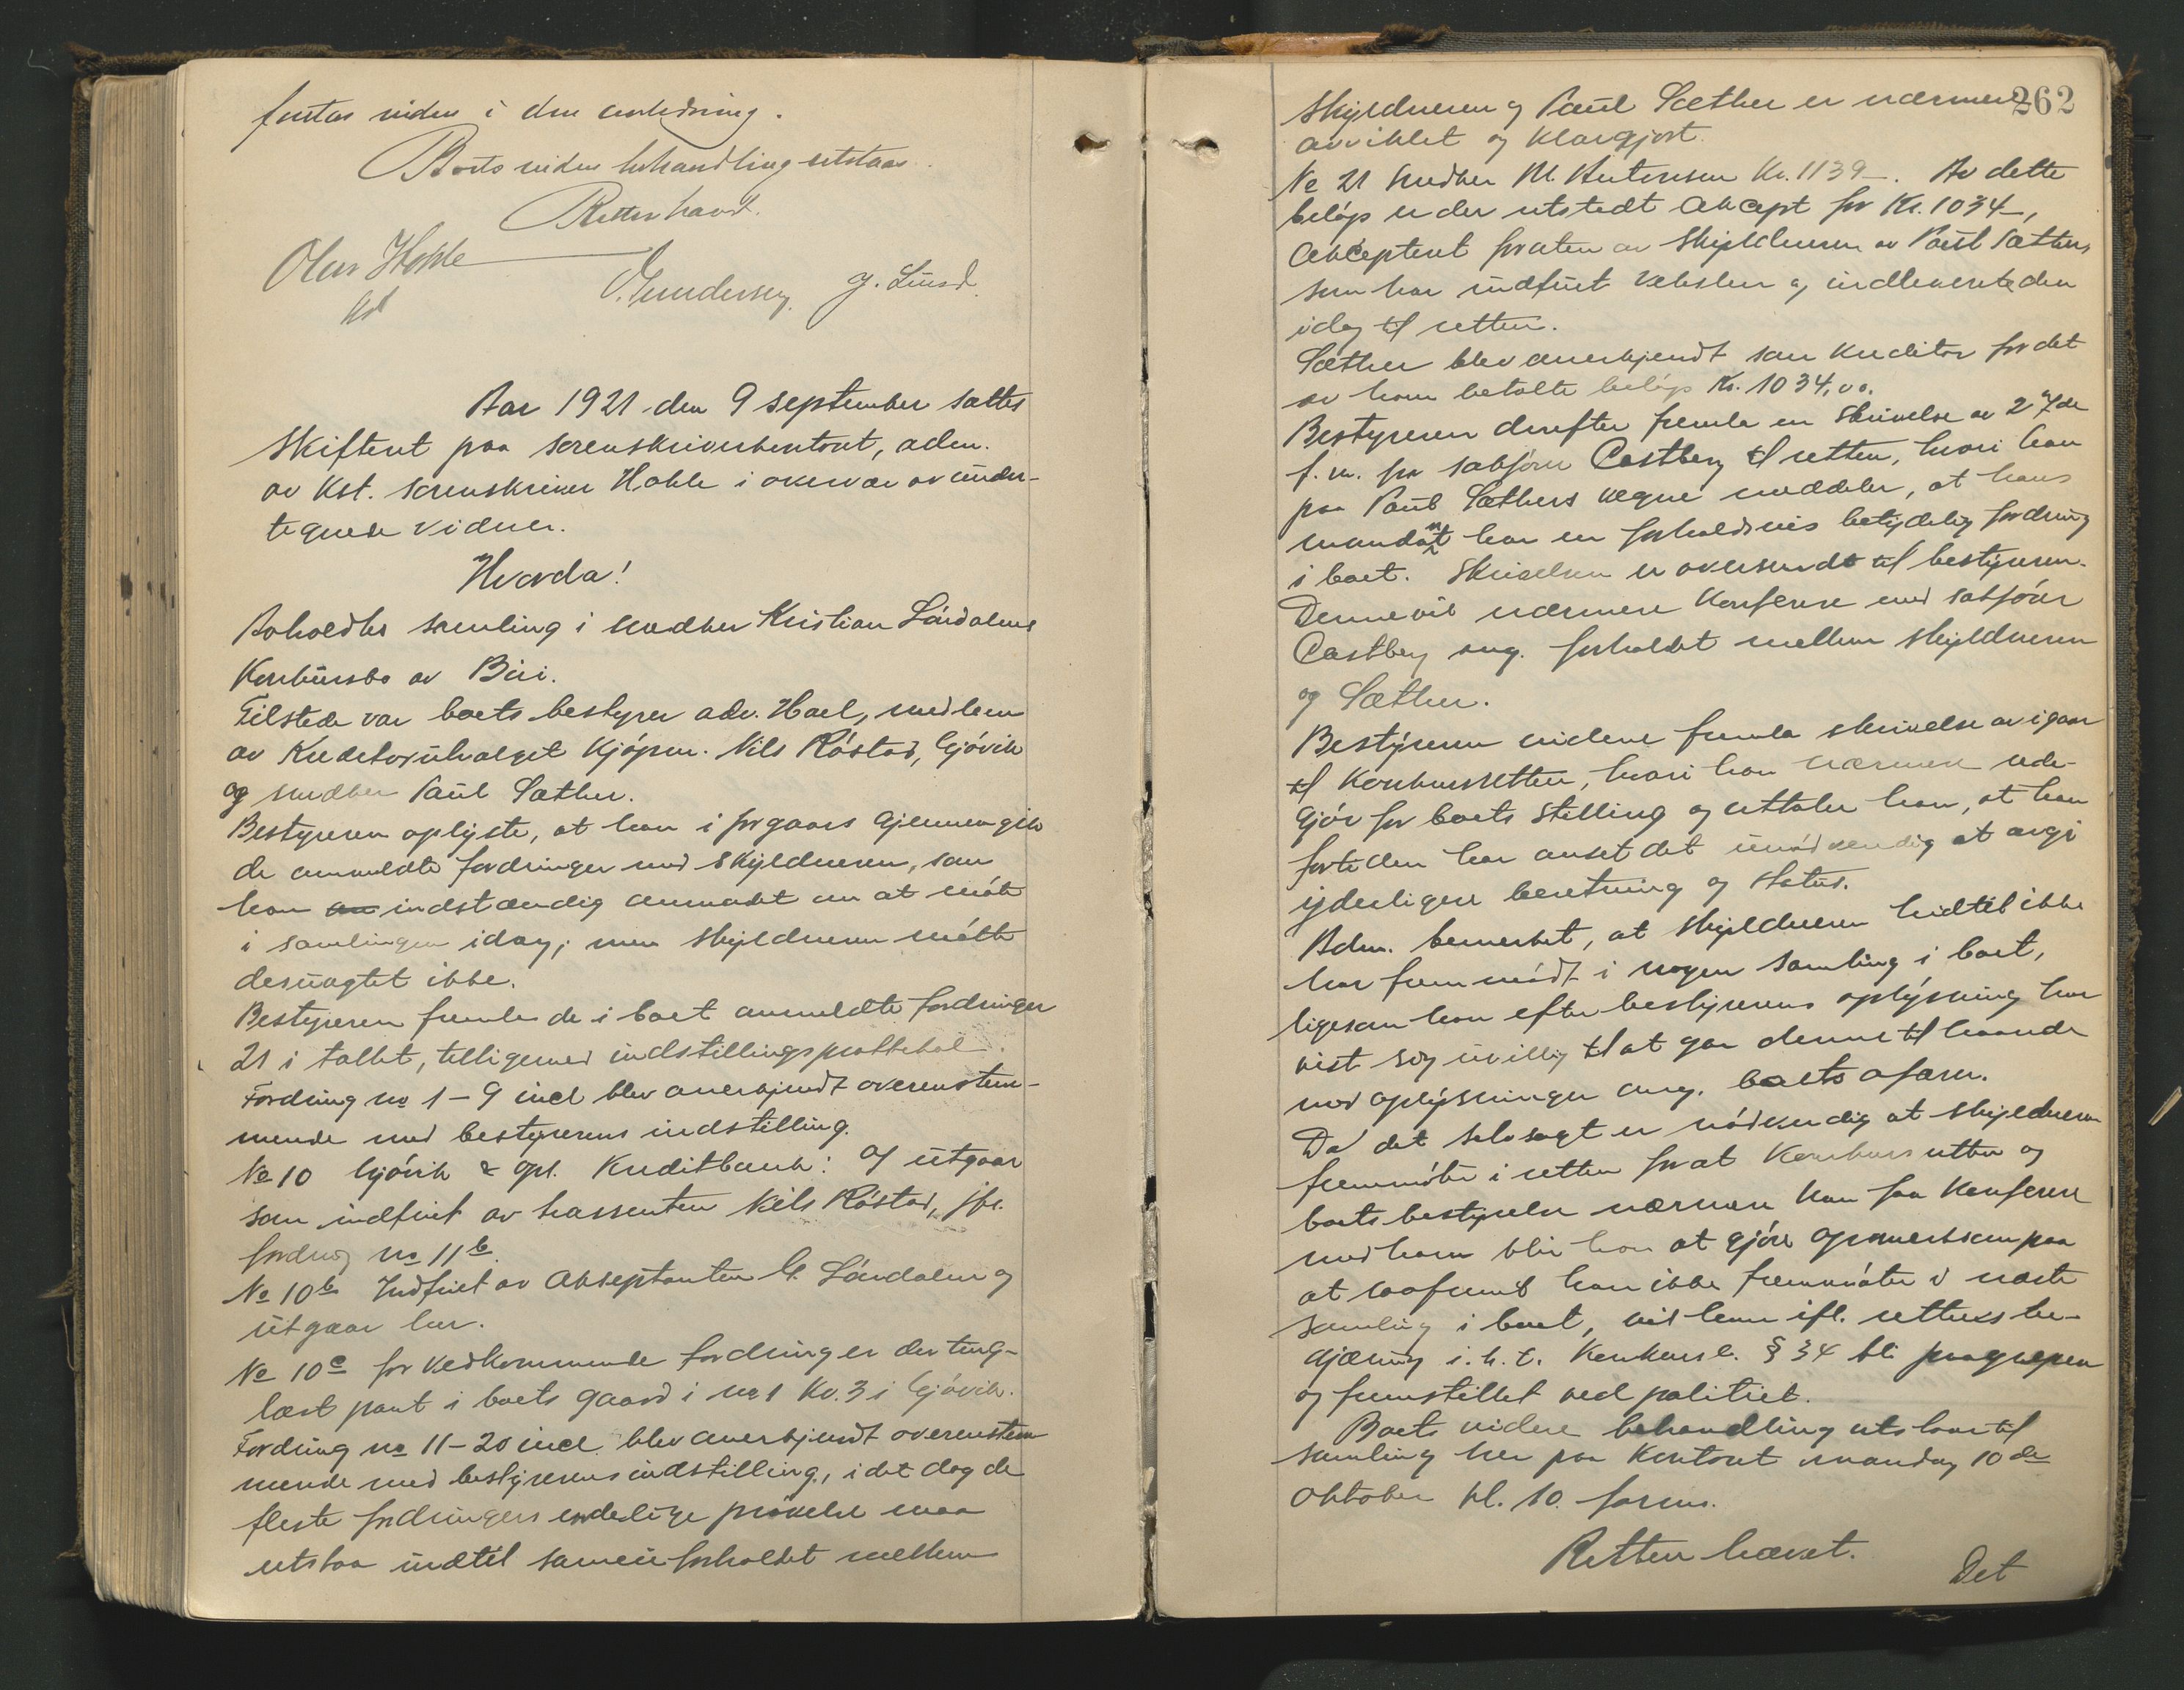 foretas viden i den anledning.
Boets viden behandling utstaar.
Retten hævet.
Olav Hohle
kst
O. Gundersen. J. Lund.
Aar 1921 den 9 september sattes
Skifteret paa sorenskriverkontoret, adm.
av kst. sorenskriver Hohle i overvær av under-
tegnede vidner.
Hvorda!
Avholdtes samling i snedker Kristian Lårdalens
Konkursbo av Biri.
Tilstede var boets bestyrer adv. Hoel, medlem
av Kreditorutvalget kjøpm. Nils Røstad, Gjøvik
og snedker Paul Sæther.
Bestyreren oplyste, at han i forgaars gjennemgik
de anmeldte fordringer med skyldneren, som
han indstændig anmodet om at møte
i samlingen idag; men skyldneren møtte
desuagtet ikke.
Bestyreren fremla de i boet anmeldte fordringer
21 i tallet, tilligemed indstillingsprottokol.
Fordring no 1 – 9 incl blev anerkjendt overenstem-
mende med bestyrerens indstilling.
No 10 Gjøvik & Opl. Kreditbank: a) utgaar
som indfriet av trassenten Nils Røstad, jfr.
fordring no 11b.
No 10b Indfriet av Akseptanten G. Lårdalen og
utgaar her.
No 10c for vedkommende fordring er der ting-
læst pant i boets gaard i no 1 Kv. 3 i Gjøvik.
Fordring no 11 – 20 incl. blev anerkjendt overenstem
mende med bestyrerens indstilling, idet dog de
fleste fordringers endelige prøvelse maa
utstaa indtil sameieforholdet mellem
262
Skyldneren og Paul Sæther er nærmere
avviklet og klargjort.
No 21 Snedker M. Antonsen Kr. 1139 –. Av dette
beløp er der utstedt Akcept for Kr. 1034 –,
Akcepteret foruten av Skyldneren av Paul Sæther,
som har indfriet vekslen og indleverte den
idag til retten.
Sæther blev anerkjendt som kreditor for det
av ham betalte beløp Kr. 1034,00.
Bestyreren derefter fremla en skrivelse av 27de
f. m. fra sakfører Castberg til retten, hvori han
paa Paul Sæthers vegne meddeler, at hans
mandant har en forholdsvis betydelig fordring
i boet. Skrivelsen er oversendt til bestyreren.
Denne vil nærmere konferere med sakfører
Castberg ang. forholdet mellem skyldneren
og Sæther.
Bestyreren videre fremla skrivelse av igaar
til konkursretten, hvori han nærmere rede-
gjør for boets stilling og uttaler han, at han
fortiden har anset det unødvendig at avgi
yderligere beretning og status.
Adm. bemerket, at skyldneren hidtil ikke
har fremmødt i nogen samling i boet,
ligesom han efter bestyrerens oplysning har
vist sig uvillig til at gaa denne til haande
med oplysninger ang. boets afærer.
Da det selvsagt er nødvendig at skyldneren
fremmøter i retten for at konkursretten og
boets bestyrelse nærmere kan faa konferere
med ham blir han at gjøre opmerksom paa
at saafremt han ikke fremmøter i næste
samling i boet, vil han ifl. rettens be-
gjæring i. h. t. Konkursl. § 34 bli paagrepen
og fremstillet ved politiet.
Boets videre behandling utstaar til
samling her paa kontoret mandag 10de
oktober kl. 10 form.
Retten hævet.
Det